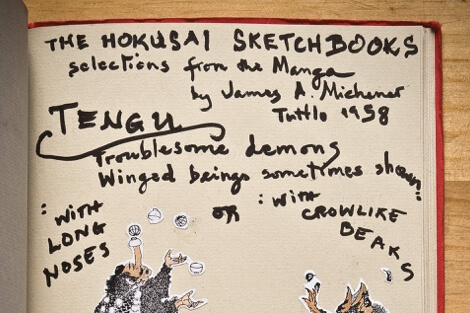 THE HOKUSAI SKETCHBOOKS
selections from the Manga
by James A. Michener
Tuttle 1958
TENGU
Troublesome demons
Winged beings sometimes shown:
: WITH
LONG
NOSES
OR
: WITH
CROWLIKE
BEAKS